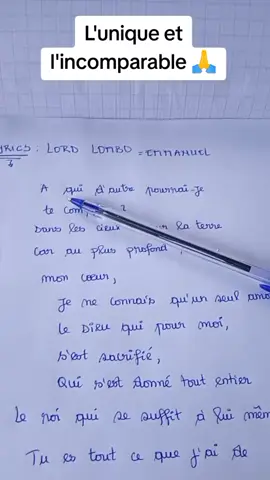 L'unique et
l'incomparable 🙏
LYRICS : LORD LOMBO = EMMANUEL
A qui d'autre pourrai-je
te
Dans les cieux sur la terre
Car au plus profond
mon cœur,
Je ne connais qu'un seul
Le Dieu qui pour moi,
s'est sacrifié,
Qui s'est donné tout entier
Le roi qui se suffit à lui
Tu es tout ce que j'ai de